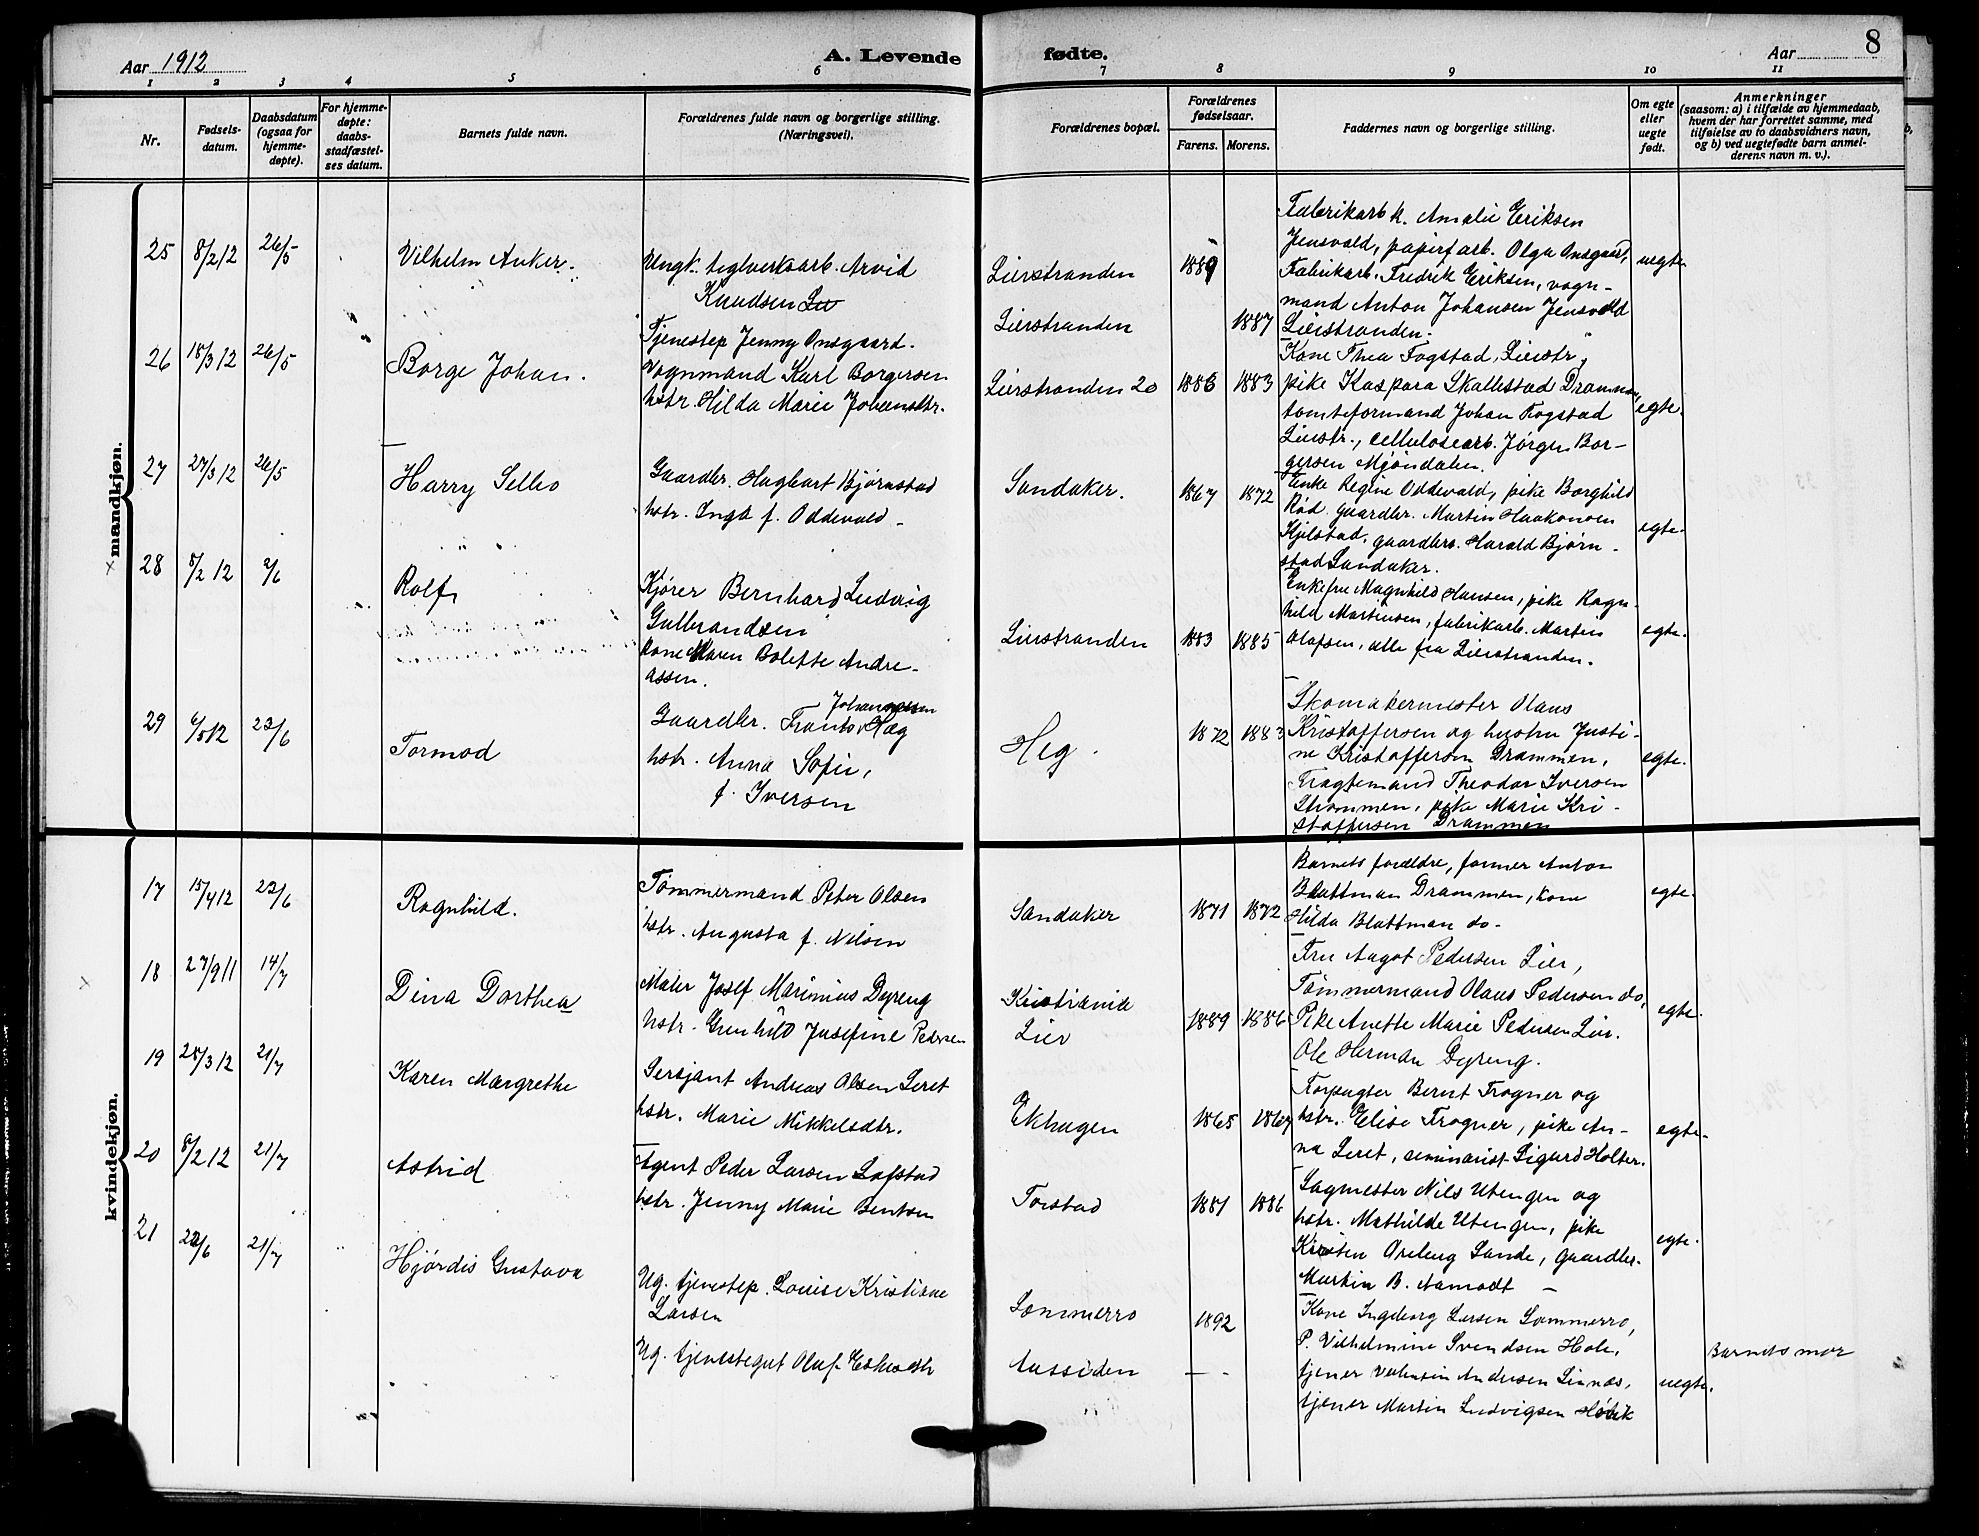 Aar 1912
A. Levende
fødte.
Aar
8
1 2 3 4 5 6 7 8 9 10 11
Nr.
Fødsels-
datum.
Daabsdatum
(ogsaa for
hjemme-
døpte).
For hjemme-
døpte:
daabs-
stadfæstel-
ses datum.
Barnets fulde navn.
Forældrenes fulde navn og borgerlige stilling.
(Næringsvei).
Forældrenes bopæl.
Forældrenes
fødselsaar.
Farens. Morens.
Faddernes navn og borgerlige stilling.
Om egte
eller
uegte
født.
Anmerkninger
(saasom: a) i tilfælde av hjemmedaab,
hvem der har forrettet samme, med
tilføielse av to daabsvidners navn,
og b) ved uegtefødte barn anmel-
derens navn m. v.).
mandkjøn.
25 8/2 12 26/5
Vilhelm Anker.
Ungk. teglverksarb. Arvid
Knudsen Lie
Tjenestep Jenny Onsgaard.
Lierstranden 1889
Lierstranden 1887
Fabrikarb k. Amalie Eriksen
Jensvold, papirfarb. Olga Onsgaard,
Fabrikarb. Fredrik Eriksen, vogn-
mand Anton Johansen Jensvold
Lierstranden.
uegte
26 18/3 12 26/5
Borge Johan.
Vognmand Karl Borgersen
hstr. Hilda Marie Johansdtr.
Lierstranden 20 1886 1883
Kone Thea Fogstad, Lierstr,
pike Kaspara Skallestad Drammen,
tomteformand Johan Fogstad
Lierstr., cellulosearb. Jørgen Bor-
gersen Mjøndalen.
egte.
27 27/3 12 26/5
Harry Selbo
Gaardbr. Hagbart Bjørnstad
hstr. Inga f. Oddevald -
Sandaker. 1867 1872
Enke Regine Oddevald, pike Borghild
Rød, gaardbr. Martin Haakonsen
Kjelstad, gaardbr. Harald Bjørn-
stad Sandaker.
egte.
28 8/2 12 2/6
Rolf,
Kjører Bernhard Ludvig
Gulbrandsen
kone Maren Bolette Andre-
assen.
Lierstranden 1883 1885
Enkefru Magnhild Hansen, pike Ragn-
hild Martinsen, fabrikarb. Martin
Olafsen, alle fra Lierstranden.
egte.
29 6/5 12 23/6
Tormod
Johannessen
Gaardbr. Frants Hæg
hstr. Anna Sofie,
f. Iversen
Heg. 1872 1883
Skomakermester Olaus
Kristoffersen og hustru Justi-
ne Kristoffersen Drammen,
Fragtemand Theodor Iversen
Strømmen, pike Marie Kri-
stoffersen Drammen
egte.
kvindekjøn.
17 15/4 12 23/6
Ragnhild.
Tømmermand Peter Olsen
hstr. Augusta f. Nilsen
Sandaker 1871 1872
Barnets forældre, former Anton
Blattman Drammen, kone
Hilda Blattman do-
egte.
18 27/9 11 14/7
Dina Dorthea
Maler Josef Marinius Dyreng
hstr. Gunhild Josefine Pedersen
Kristiania
Lier 1889 1886
Fru Aagot Pedersen Lier,
Tømmermand Olaus Pedersen do,
Pike Anette Marie Pedersen Lier.
Ole Herman Dyreng.
egte.
19 28/3 12 21/7
Karen Margrethe
Sersjant Andreas Olsen Leret
hstr. Marie Mikkelsdtr.
Ekhagen 1865 1867
Forpagter Bernt Frogner og
hstr. Elise Frogner, pike An-
na Leret, seminarist Sigurd Holter.
egte-
20 8/2 12 21/7
Astrid
Agent Peder Larsen Lofstad
hstr. Jenny Marie Bentsen
Torstad 1881 1886
Sagmester Nils Utengen og
hstr. Mathilde Utengen, pike
Kirsten Oreberg Sande, gaardbr.
Martin B. Aamodt -
egte.
21 22/6 21/7
Hjørdis Gustava
Ug. tjenestep. Louise Kristiane
Larsen
Ug. tjenestegut Oluf
Sommerro 1892
Aassiden - -
Kone Ingeborg Larsen Sommerro,
P. Vilhelmine Svendsen Hole,
tjener Valentin Andersen Linnæs,
tjener Martin Ludvigsen Høvik
uegte.
Barnets mor